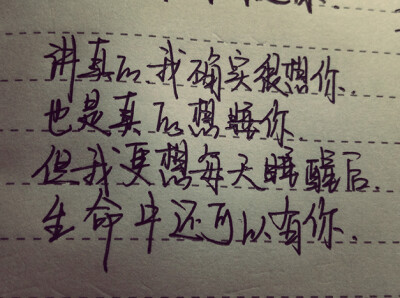 讲真的我确实很想你.
也是真的想睡你.
但我更想每天睡醒后.
生命中还可以有你.